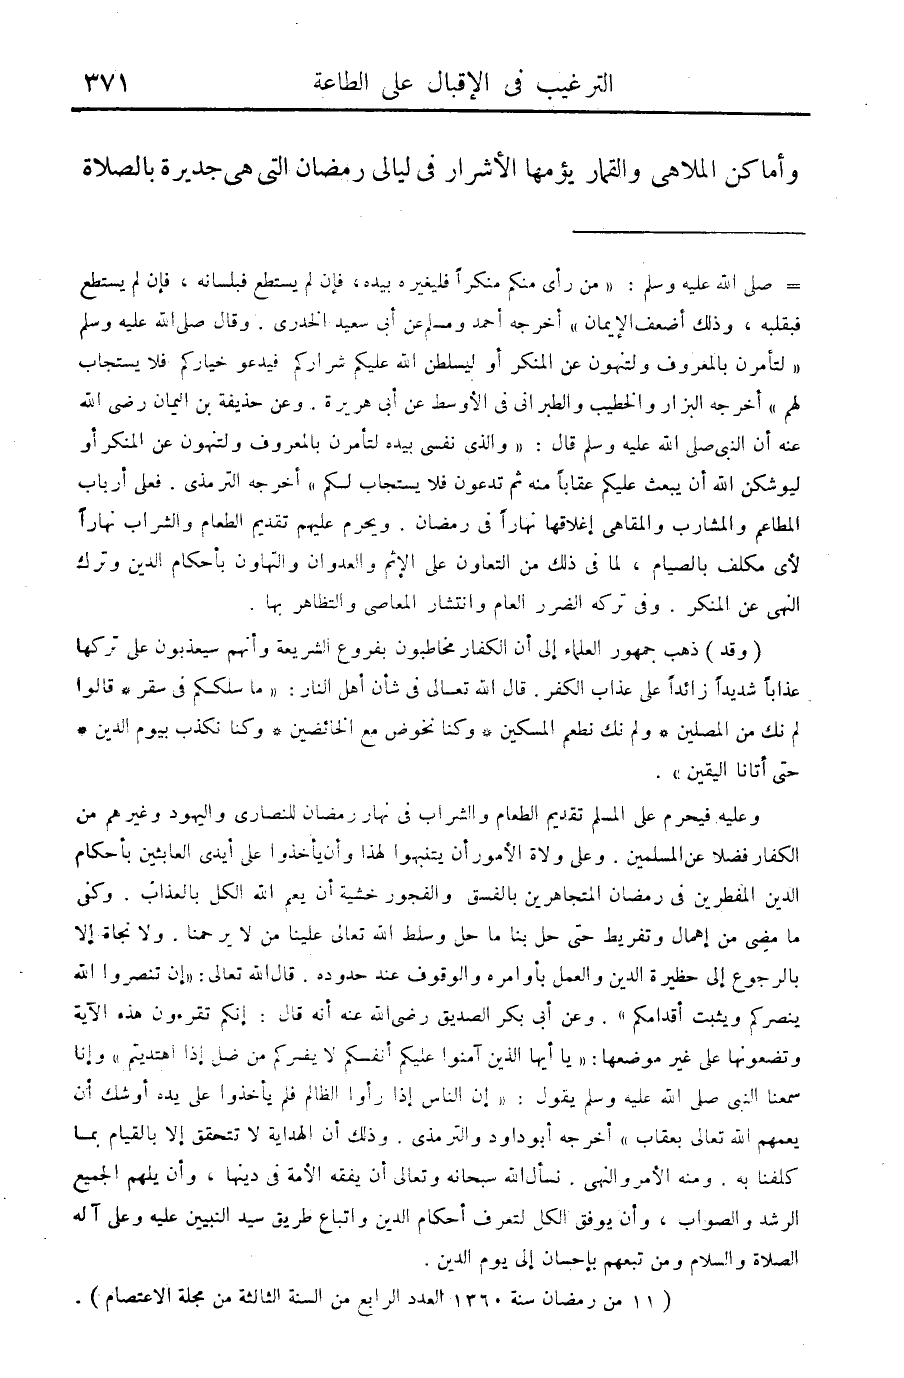 الترغيب فى الإقبال على الطاعة ٣٧١
وأماكن الملاهى والقمار يؤمها الأشرار فى ليالى رمضان التى هى جديرة بالصلاة
= صلى الله عليه وسلم : « من رأى منكم منكراً فليغيره بيده، فإن لم يستطع فبلسانه ، فإن لم يستطع
فبقلبه ، وذلك أضعف الإيمان » أخرجه أحمد ومسلم عن أبى سعيد الخدرى . وقال صلى الله عليه وسلم
« لتأمرن بالمعروف ولتنهون عن المنكر أو ليسلطن الله عليكم شراركم فيدعو خياركم فلا يستجاب
لهم » أخرجه البزار والخطيب والطبرانى فى الأوسط عن أبى هريرة . وعن حذيفة بن اليمان رضى الله
عنه أن النبى صلى الله عليه وسلم قال : « والذى نفسى بيده لتأمرن بالمعروف ولتنهون عن المنكر أو
ليوشكن الله أن يبعث عليكم عقاباً منه ثم تدعون فلا يستجاب لكم » أخرجه الترمذى . فعلى أرباب
المطاعم والمشارب والمقاهى إغلاقها نهاراً فى رمضان . ويحرم عليهم تقديم الطعام والشراب نهاراً
لأى مكلف بالصيام ، لما فى ذلك من التعاون على الإثم والعدوان والتهاون بأحكام الدين وترك
النهى عن المنكر . وفى تركه الضرر العام وانتشار المعاصى والتظاهر بها .
( وقد ) ذهب جمهور العلماء إلى أن الكفار مخاطبون بفروع الشريعة وأنهم سيعذبون على تركها
عذاباً شديداً زائداً على عذاب الكفر . قال الله تعالى فى شأن أهل النار : « ما سلككم فى سقر * قالوا
لم نك من المصلين * ولم نك نطعم المسكين * وكنا نخوض مع الخائضين * وكنا نكذب بيوم الدين *
حتى أتانا اليقين » .
وعليه فيحرم على المسلم تقديم الطعام والشراب فى نهار رمضان للنصارى واليهود وغيرهم من
الكفار فضلا عن المسلمين . وعلى ولاة الأمور أن يتنبهوا لهذا وأن يأخذوا على أيدى العابثين بأحكام
الدين المفطرين فى رمضان المتجاهرين بالفسق والفجور خشية أن يعم الله الكل بالعذاب . وكفى
ما مضى من إهمال وتفريط حتى حل بنا ما حل وسلط الله تعالى علينا من لا يرحمنا . ولا نجاة إلا
بالرجوع إلى حظيرة الدين والعمل بأوامره والوقوف عند حدوده . قال الله تعالى: «إن تنصروا الله
ينصركم ويثبت أقدامكم » . وعن أبى بكر الصديق رضى الله عنه أنه قال : إنكم تقرءون هذه الآية
وتضعونها على غير موضعها: « يا أيها الذين آمنوا عليكم أنفسكم لا يضركم من ضل إذا اهتديتم » وإنا
سمعنا النبى صلى الله عليه وسلم يقول : « إن الناس إذا رأوا الظالم فلم يأخذوا على يده أوشك أن
يعمهم الله تعالى بعقاب » أخرجه أبو داود والترمذى . وذلك أن الهداية لا تتحقق إلا بالقيام بما
كلفنا به . ومنه الأمر والنهى . نسأل الله سبحانه وتعالى أن يفقه الأمة فى دينها ، وأن يلهم الجميع
الرشد والصواب ، وأن يوفق الكل لتعرف أحكام الدين واتباع طريق سيد النبيين عليه وعلى آله
الصلاة والسلام ومن تبعهم بإحسان إلى يوم الدين .
( ١١ من رمضان سنة ١٣٦٠ العدد الرابع من السنة الثالثة من مجلة الاعتصام ) .